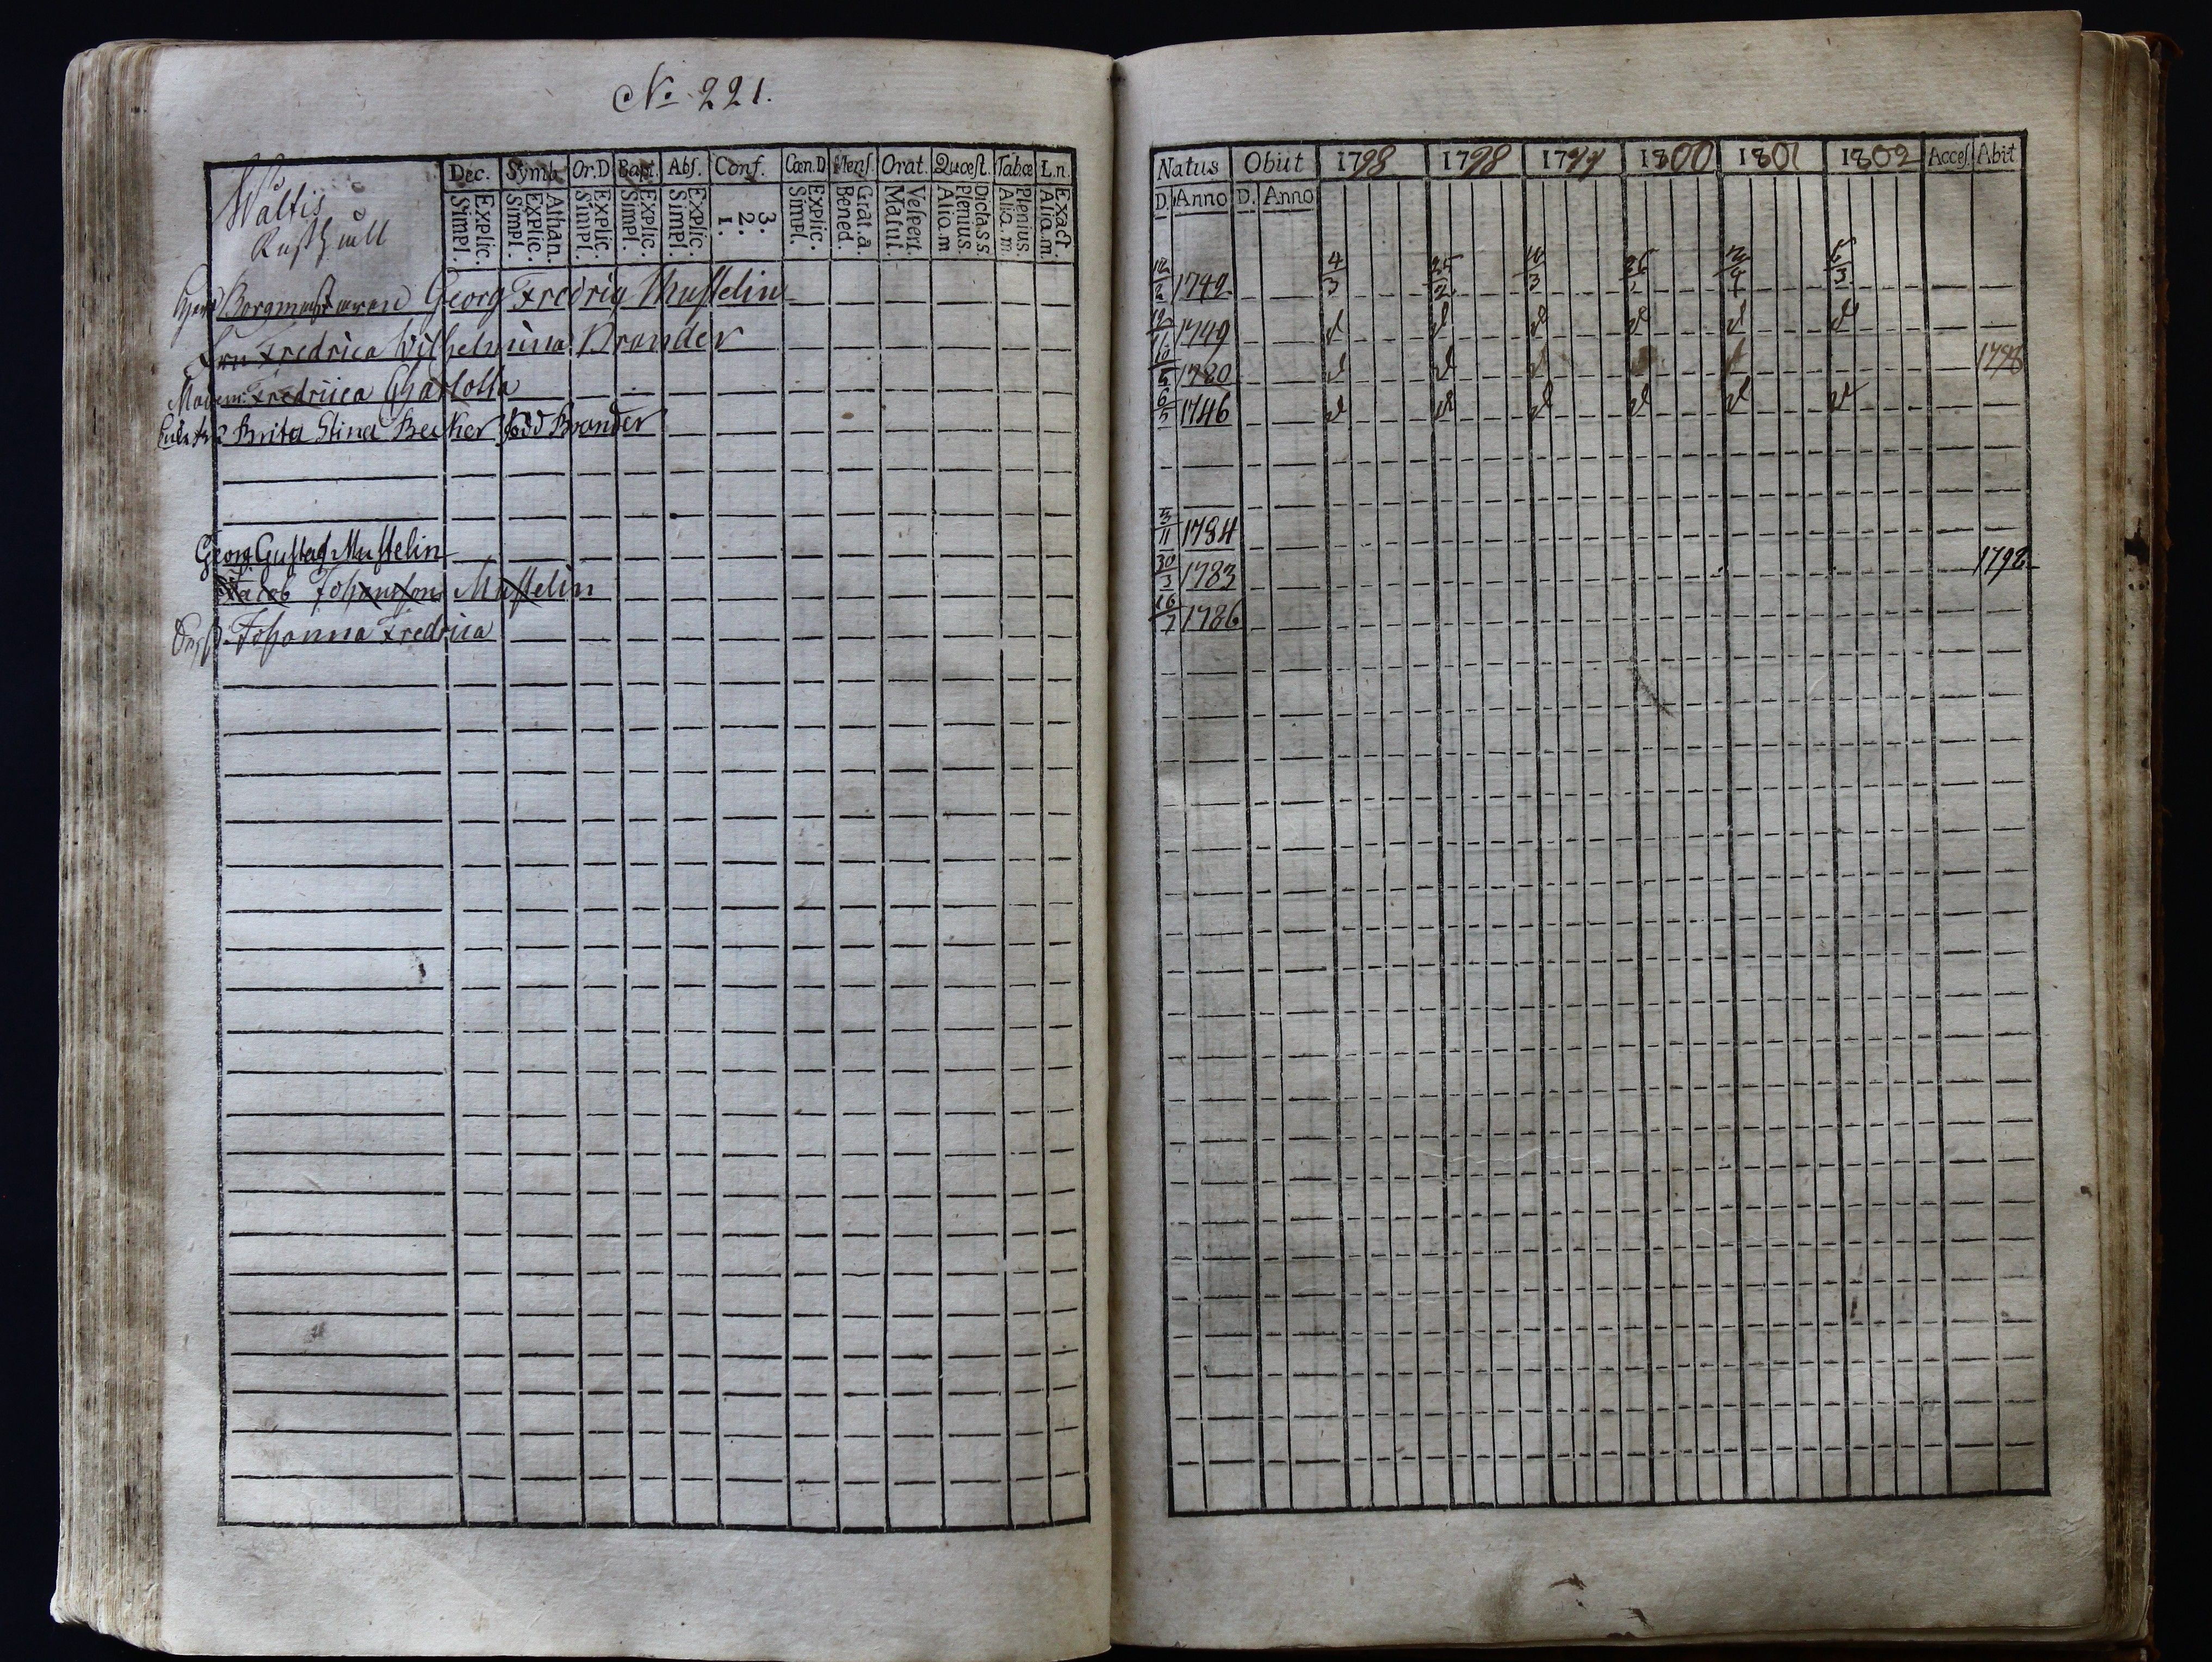 No. 221.
Waltis
Rusthåll
Dec. Symb. Or.D Bapt. Abs. Conf. Cœn.D Mens. Orat. Quœst. Tab.œ L.n.
Explic. Simpl. Athan. Explic. Simpl. Explic. Simpl. Explic. Simpl. Explic. Simpl. 3. 2. 1. Explic. Simpl. Grat. a. Bened. Vespert. Matut. Dicta.s.s. Plenius. Aliq.m Plenius. Aliq.m Exact Aliq.m
Herr Borgmästaren Georg Fredrig Musselin
Fru Fredrica Wilhelmina Brander
Madem: Fredrica Charlotta
Enk. Fr. Brita Stina Becker född Brander
Georg Gustaf Mustelin
Jacob Johansson Musselin
Johanna Fredrica
Natus Obiit 1798 1798 1799 1800 1801 1802 Acces. Abit
D. Anno D. Anno
1749 4/3 25/2 16/3
12/11 1749
1780 1798
6/5 1746
5/11 1784
30/3 1783 1798
16/7 1786